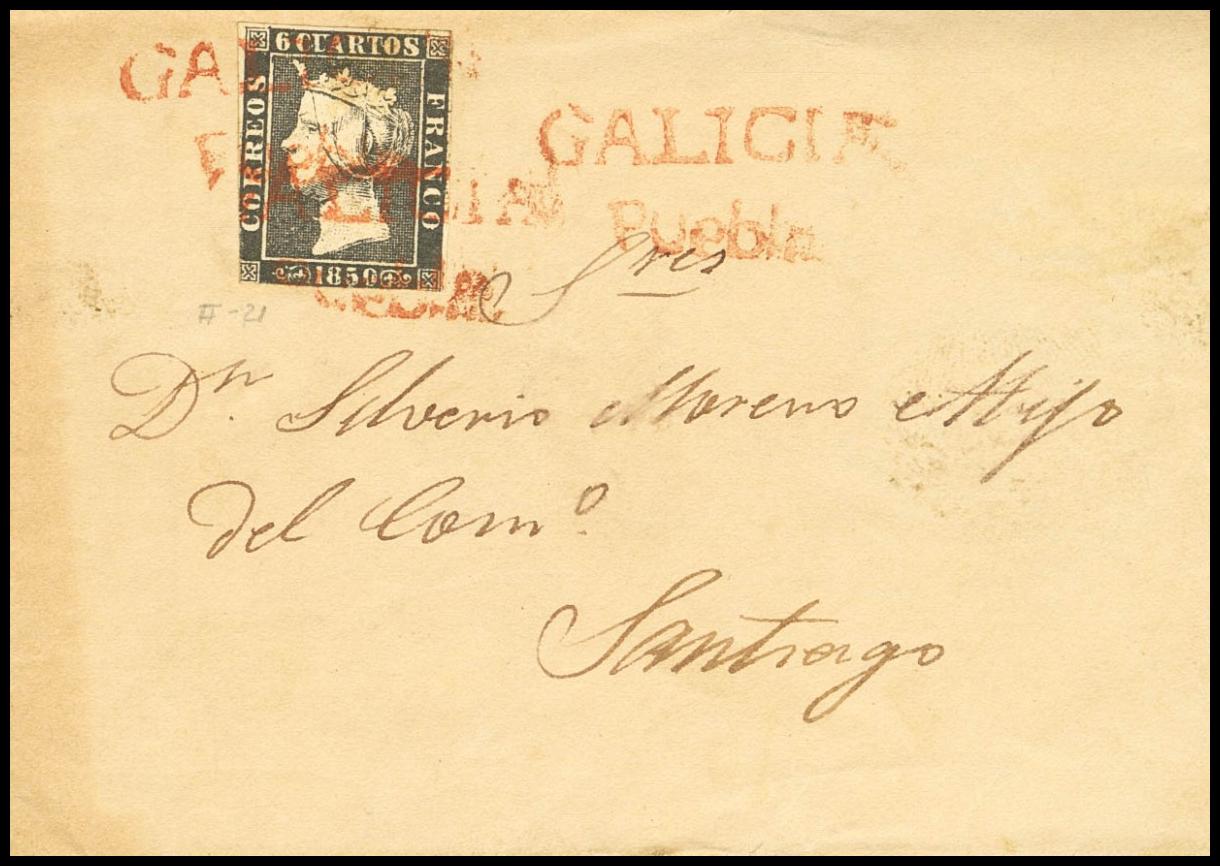 6 CUARTOS
CORREOS
FRANCO
1850
GALICIA
Puebla
GALICIA
II-21
Sres
Dn. Silverio Moreno e Hijo
del Como.
Santiago